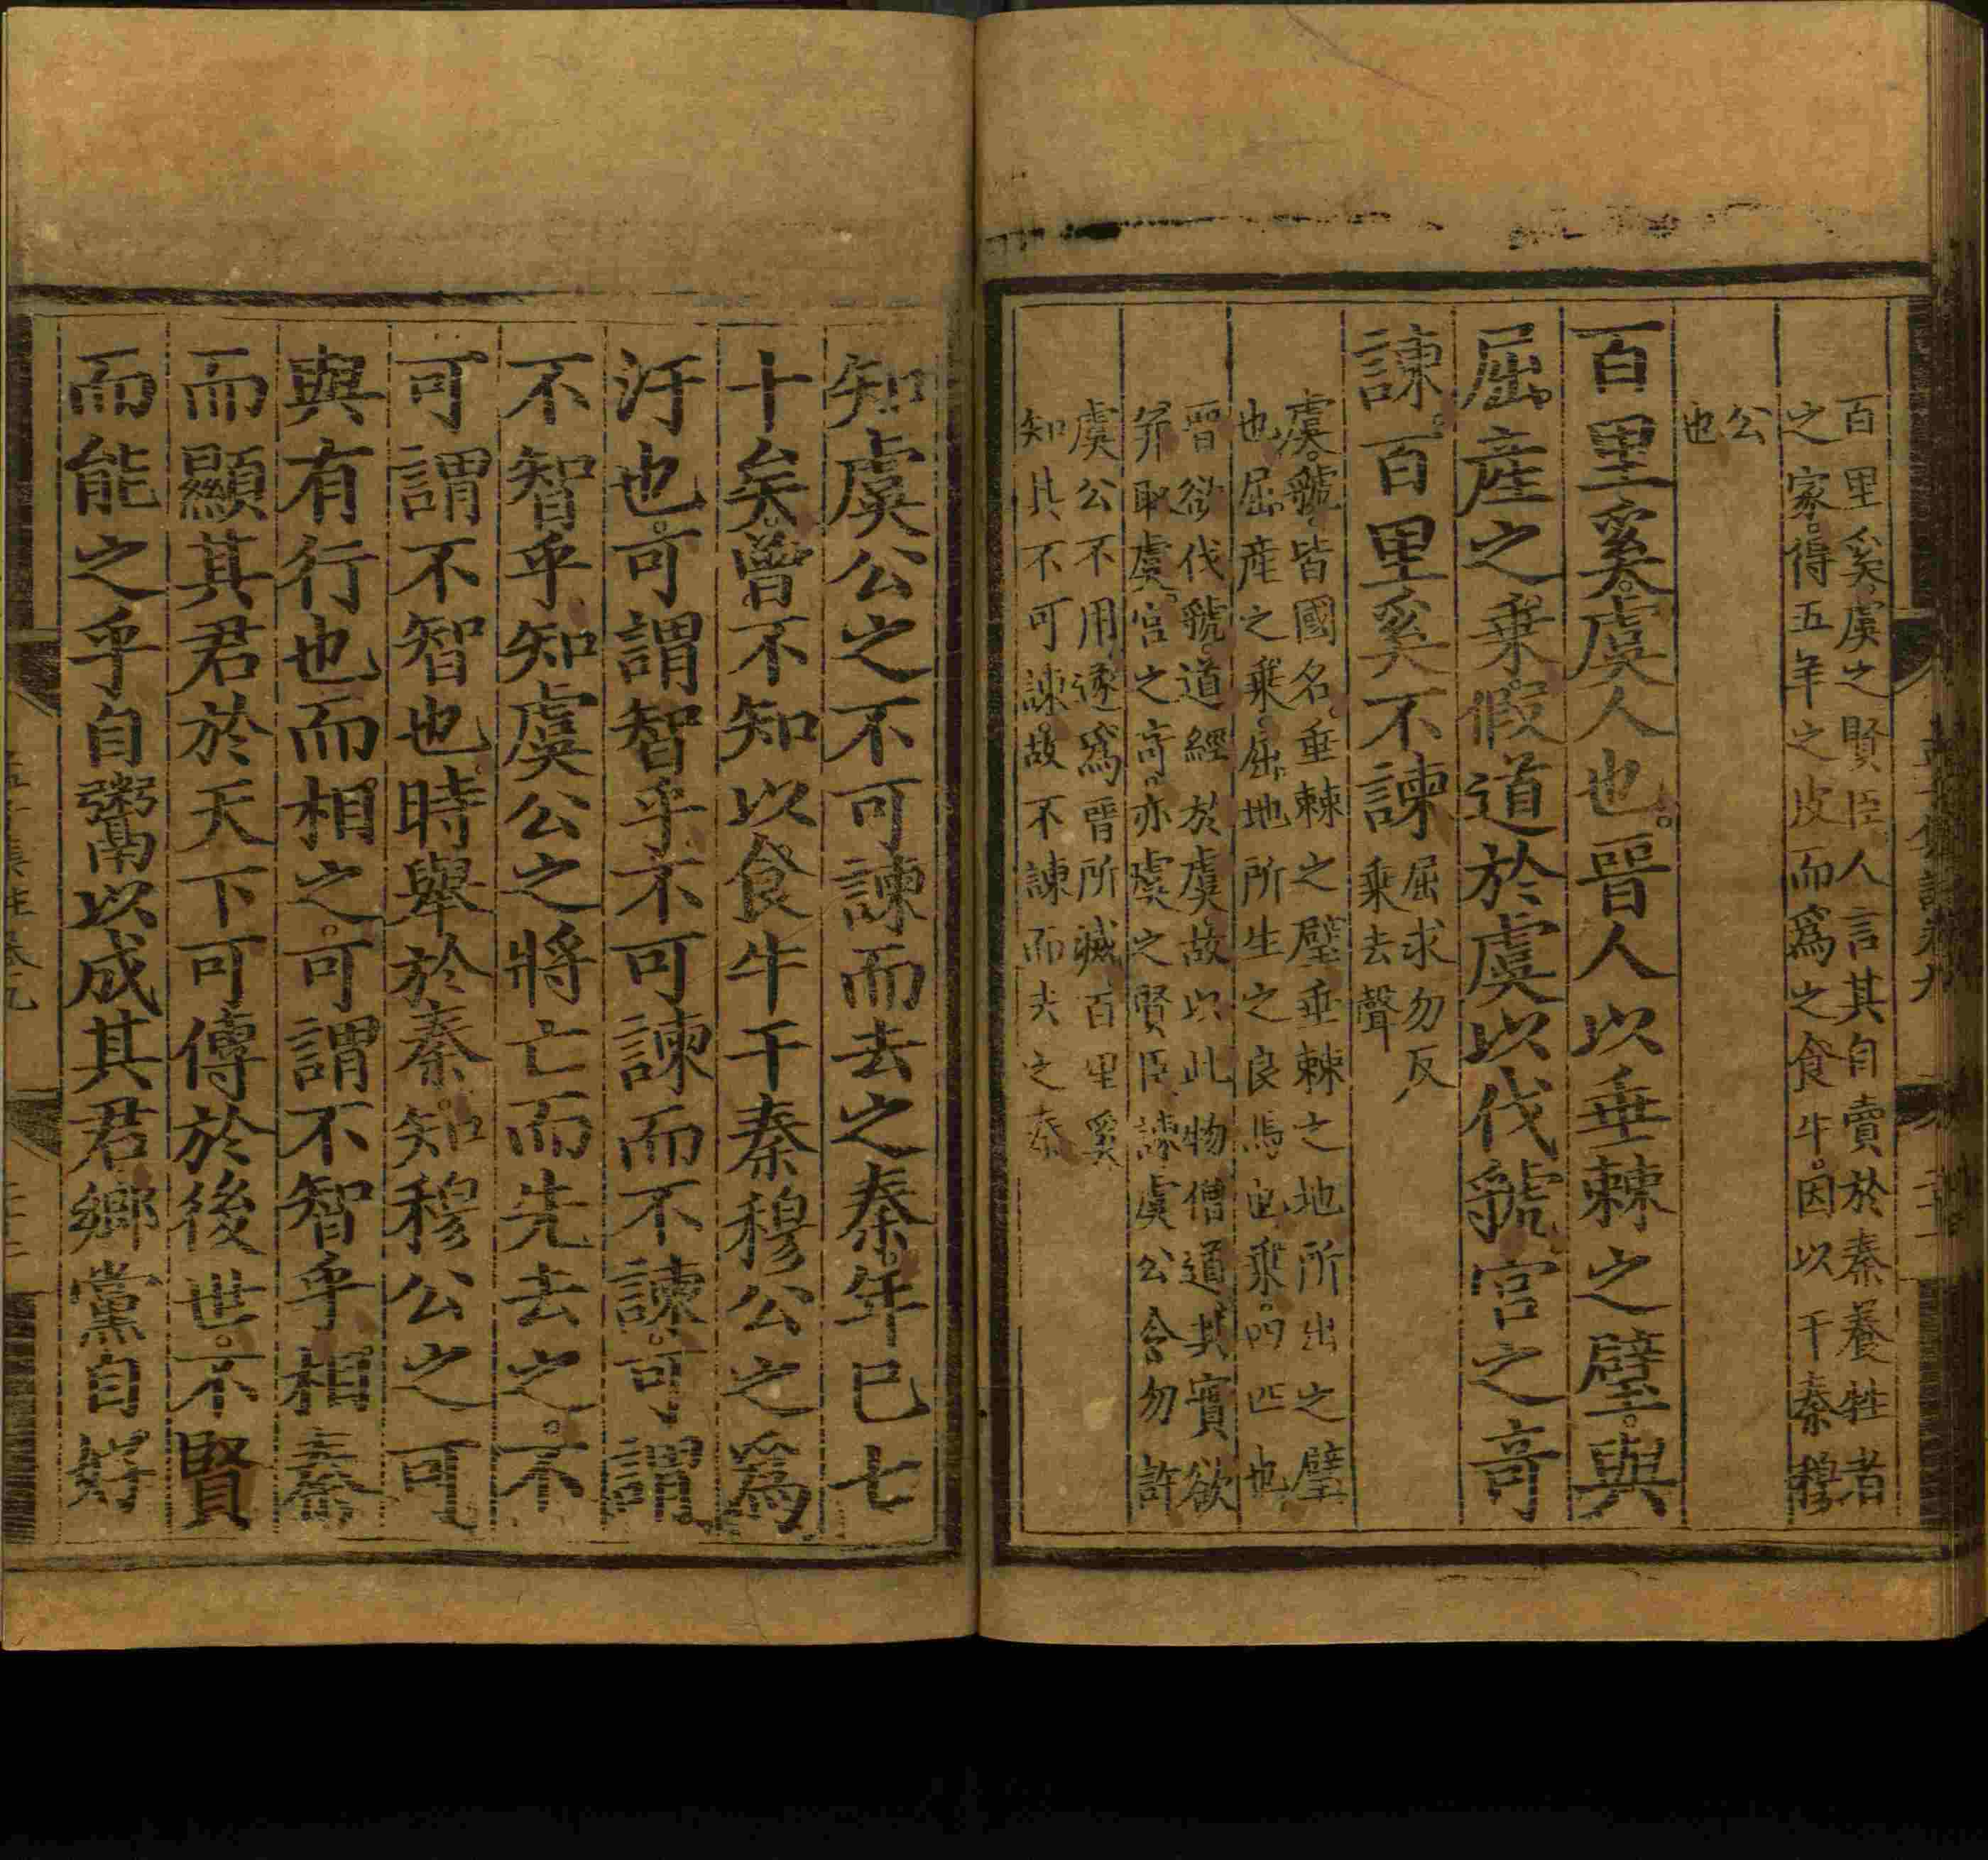 百里奚。虞之賢臣。人言其自賣於秦養牲者
之家。得五年之皮。而爲之食牛。因以干秦穆
公
也
百里奚。虞人也。晉人以垂棘之璧。與
屈產之乘。假道於虞以伐虢。宮之奇
諫。百里奚不諫
屈求勿反
乘去聲
虞。虢。皆國名。垂棘之璧。垂棘之地所出之璧
也。屈產之乘。屈地所生之良馬也。乘。四匹也。
晉欲伐虢。道經於虞。故以此物借道。其實欲
幷取虞。宮之奇。亦虞之賢臣。諫虞公令勿許
虞公不用。遂爲晉所滅。百里奚
知其不可諫。故不諫而去之秦
知虞公之不可諫而去之秦。年已七
十矣。曾不知以食牛干秦穆公之爲
汙也。可謂智乎。不可諫而不諫。可謂
不智乎。知虞公之將亡而先去之。不
可謂不智也。時舉於秦。知穆公之可
與有行也而相之。可謂不智乎。相秦
而顯其君於天下可傳於後世。不賢
而能之乎自鬻以成其君鄉黨自好